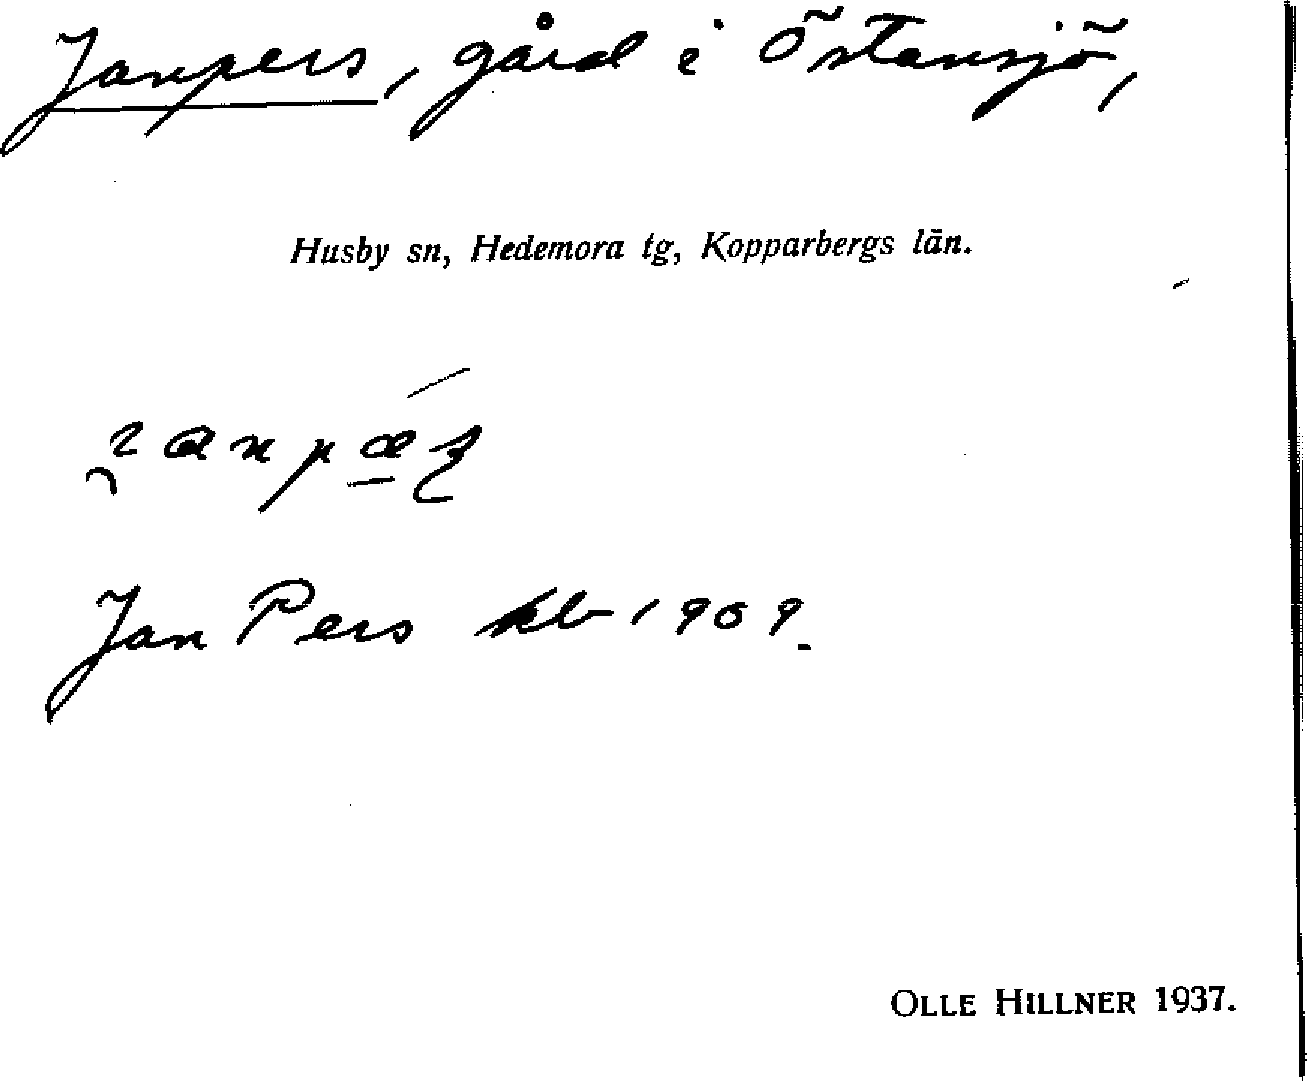 Janpers, gård i Östansjö,
Husby sn, Hedemora tg, Kopparbergs län.
Jan Pers kb 1909.
OLLE HILLNER 1937.